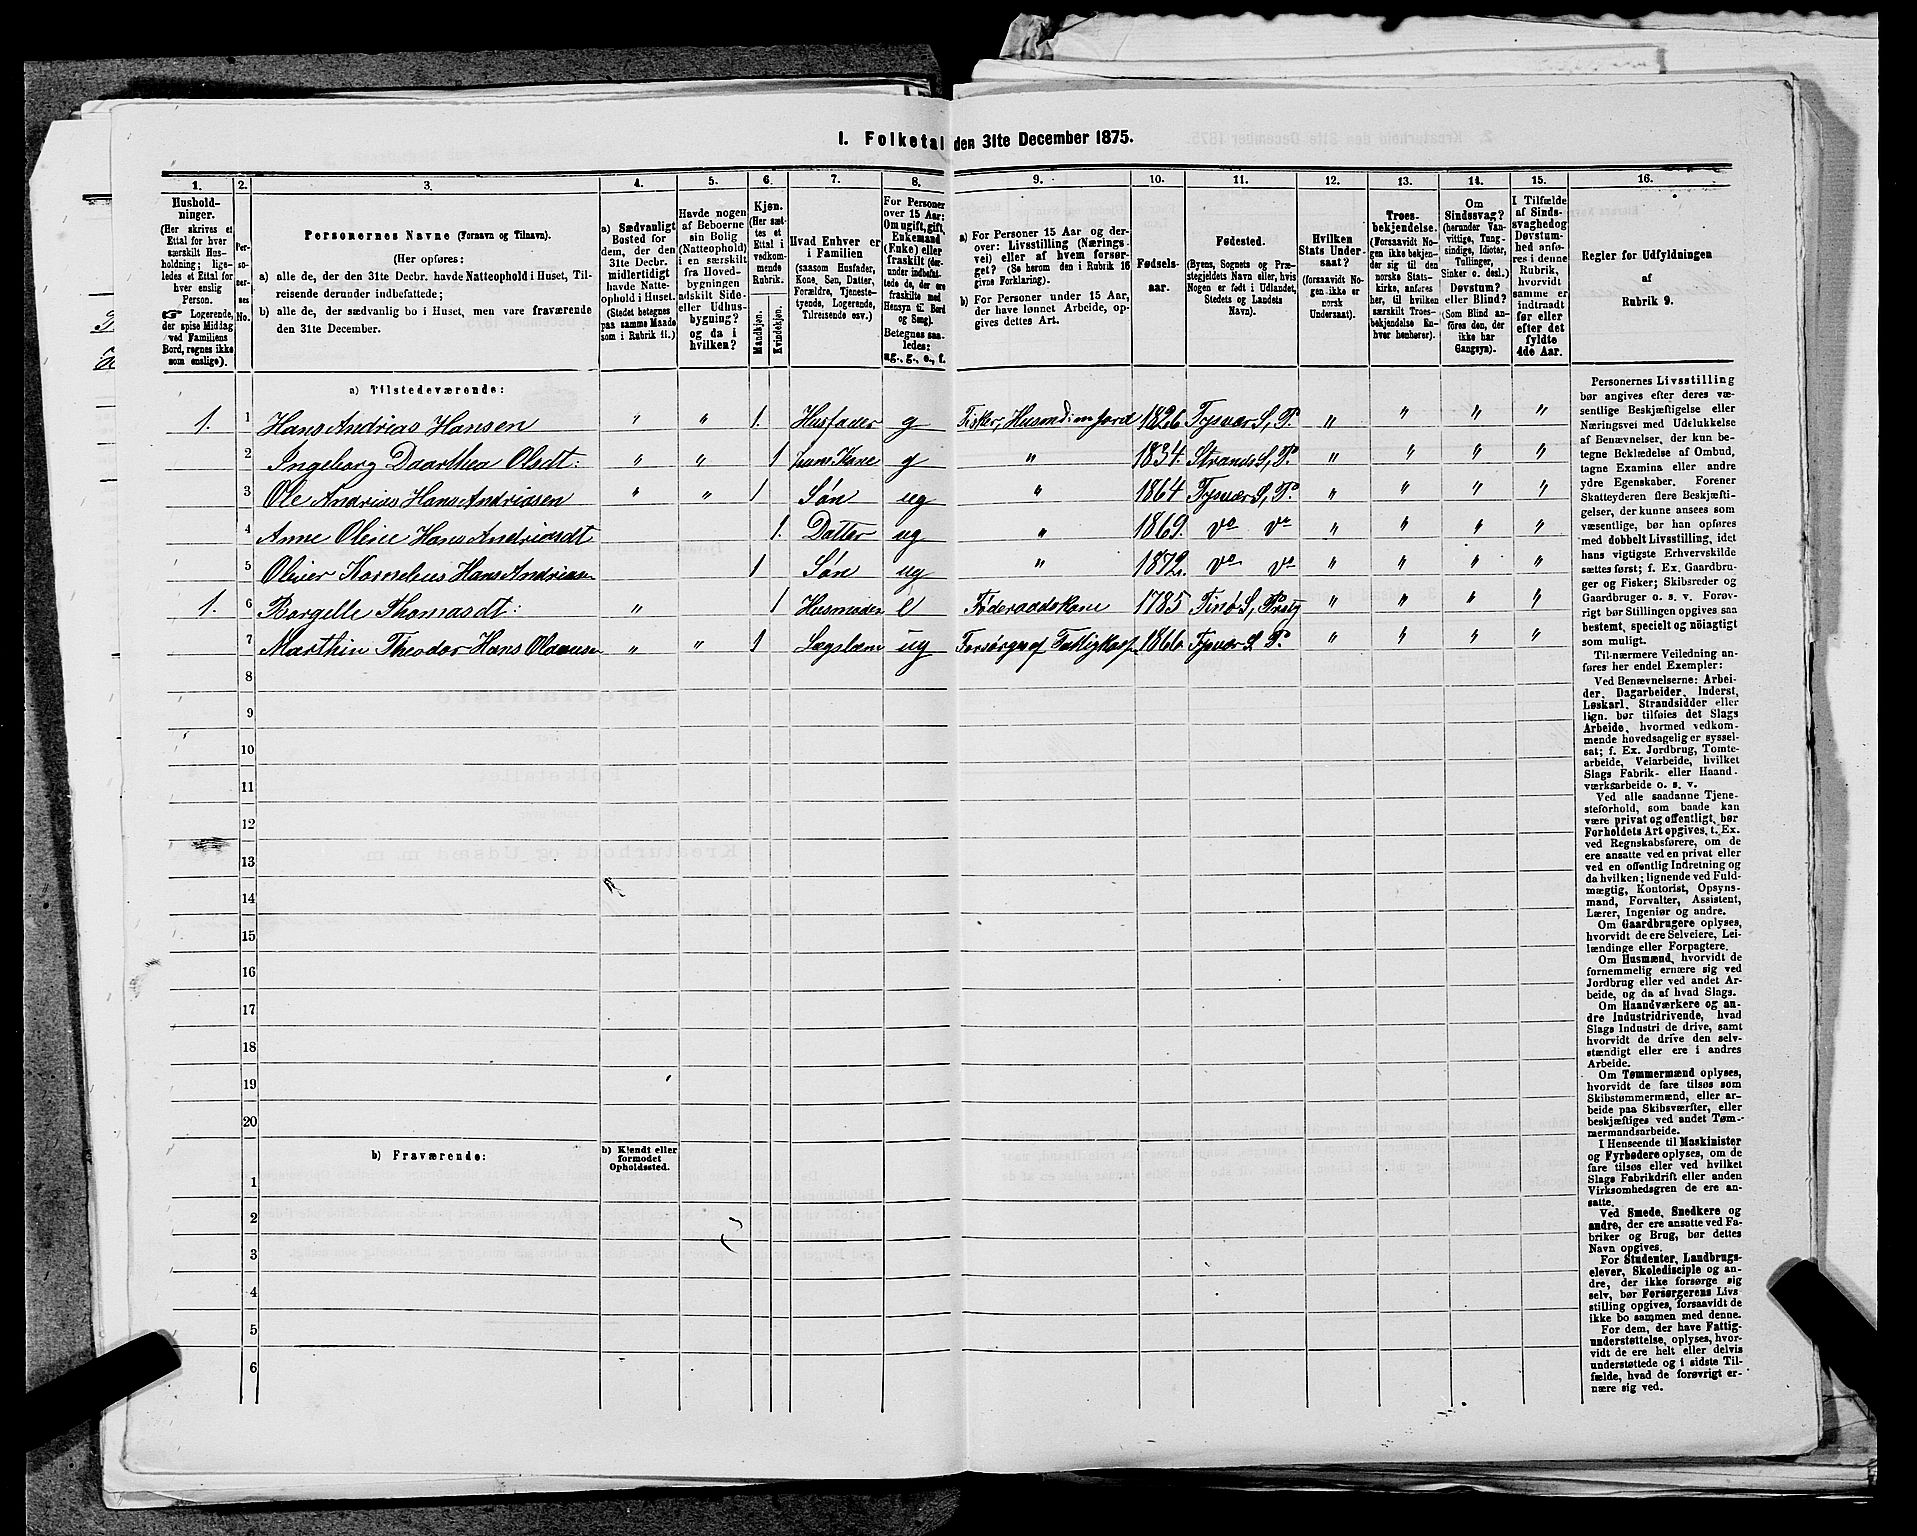 I. Folketal den 31te December 1875.
1. 2. 3. 4. 5. 6. 7. 8. 9. 10. 11. 12. 13. 14. 15. 16.
Hushold-
ninger.
(Her skrives et
Ettal for hver
særskilt Hus-
holdning; lige-
ledes et Ettal for
hver enslig
Person.
☞ Logerende,
der spise Middag
ved Familiens
Bord, regnes ikke
som enslige).
Per-
so-
ner-
nes
No.
Personernes Navne (Fornavn og Tilnavn).
(Her opføres:
a) alle de, der den 31te Decbr. havde Natteophold i Huset, Til-
reisende derunder indbefattede;
b) alle de, der sædvanlig bo i Huset, men vare fraværende
den 31te December.
a) Sædvanligt
Bosted for
dem, der den
31te Decbr.
midlertidigt
havde Natte-
ophold i Huset.
(Stedet betegnes
paa samme Maade
som i Rubrik 11.)
Havde nogen
af Beboerne
sin Bolig
(Natteophold)
i en særskilt
fra Hoved-
bygningen
adskilt Side-
eller Udhus-
bygning?
og da i
hvilken?
Kjøn.
(Her sæt-
tes et
Ettal i
vedkom-
mende
Rubrik.
Mandkjøn.
Kvindekjøn.
Hvad Enhver er
i Familien
(saasom Husfader,
Kone, Søn, Datter,
Forældre, Tjeneste-
tyende, Logerende,
Tilreisende osv.)
For Personer
over 15 Aar:
Om ugift, gift,
Enkemand
(Enke) eller
fraskilt (der-
under indbefat-
tede de, der ere
fraskilte med
Hensyn til Bord
og Seng).
Betegnes saa-
ledes:
ug., g., e., f.
a) For Personer 15 Aar og der-
over: Livsstilling (Nærings-
vei) eller af hvem forsør-
get? (Se herom den i Rubrik 16
givne Forklaring).
b) For Personer under 15 Aar,
der have lønnet Arbeide, op-
gives dettes Art.
Fødsels-
aar.
Fødested.
(Byens, Sognets og Præ-
stegjeldets Navn eller, hvis
Nogen er født i Udlandet,
Stedets og Landets
Navn).
Hvilken
Stats Under-
saat?
(forsaavidt No-
gen ikke er
norsk
Undersaat).
Troes-
bekjendelse.
(Forsaavidt No-
gen ikke bekjen-
der sig til den
norske Stats-
kirke, anføres
her, til hvilken
særskilt Troes-
bekjendelse En-
hver henhører).
Om
Sindssvag?
(herunder Van-
vittige, Tung-
sindige, Idioter,
Tullinger,
Sinker o. desl.)
Døvstum?
eller Blind?
(Som Blind an-
føres den, der
ikke har
Gangsyn).
I Tilfælde
af Sinds-
svaghed og
Døvstum-
hed anfø-
res i denne
Rubrik,
hvorvidt
samme er
indtraadt
før eller
efter det
fyldte
4de Aar.
Regler for Udfyldningen
af
Rubrik 9.
a) Tilstedeværende:
1. 1 Hans Andrias Hansen " " 1. Husfader g Fisker, Husmd: m jord 1826 Tysvær S, P. " " " "
2 Ingeborg Daarthea Olsdt: " " 1 hans Kone g " 1834. Strands S, P. " " " "
3 Ole Andrias Hans Andriasen " " 1 Søn ug " 1864 Tysvær S, P. " " " "
4 Anne Oline Hans Andriasdt 1. Datter ug " 1869. do do " " " "
5 Olivier Kornelius Hans Andriasen 1 Søn ug " 1872. do do " " " "
1. 6 Borgelle Thomasdt: " 1 Husmoder e Føderaadskone 1785 Finø S, " " " "
7 Marthin Theodor Hans " " 1 Lægslem ug Forsørges af 1866 Tysvær S. P. " " " "
8
9
10
11
12
13
14
15
16
17
18
19
20
b) Fraværende:
b) Kjendt eller
formodet
Opholdssted.
1
2
3
4
5
6
Personernes Livsstilling
bør angives efter deres væ-
sentlige Beskjæftigelse eller
Næringsvei med Udelukkelse
af Benævnelser, der kun be-
tegne Beklædelse af Ombud,
tagne Examina eller andre
ydre Egenskaber. Forener
Skatteyderen flere Beskjæfti-
gelser, der kunne ansees som
væsentlige, bør han opføres
med dobbelt Livsstilling, idet
hans vigtigste Erhvervskilde
sættes først; f. Ex. Gaardbru-
ger og Fisker; Skibsreder og
Gaardbruger o. s. v. Forøv-
rigt bør Stillingen opgives saa
bestemt, specielt og nøiagtigt
som muligt.
Til nærmere Veiledning an-
føres her endel Exempler:
Ved Benævnelserne: Arbei-
der, Dagarbeider, Inderst,
Løskarl, Strandsidder eller
lign. bør tilføies det Slags
Arbeide, hvormed vedkom-
mende hovedsagelig er syssel-
sat; f. Ex. Jordbrug, Tomte-
arbeide, Veiarbeide, hvilket
Slags Fabrik- eller Haand-
værksarbeide o. s. v.
Ved alle saadanne Tjene-
steforhold, som baade kan
være privat og offentligt, bør
Forholdets Art opgives, t. Ex.
ved Regnskabsførere, om de
ere ansatte ved en privat eller
ved en offentlig Indretning og
da hvilken; lignende ved Fuld-
mægtig, Kontorist, Opsyns-
mand, Forvalter, Assistent,
Lærer, Ingeniør og andre.
Om Gaardbrugere oplyses,
hvorvidt de ere Selveiere, Lei-
lændinge eller Forpagtere.
Om Husmænd, hvorvidt de
fornemmelig ernære sig ved
Jordbrug eller ved andet Ar-
beide, og da af hvad Slags.
Om Haandværkere og an-
dre Industridrivende, hvad
Slags Industri de drive, samt
hvorvidt de drive den selv-
stændigt eller ere i andres
Arbeide.
Om Tømmermænd oplyses,
hvorvidt de fare tilsøs som
Skibstømmermænd, eller ar-
beide paa Skibsværfter, eller
beskjæftiges ved andet Tøm-
mermandsarbeide.
I Henseende til Maskinister
og Fyrbødere oplyses, om de
fare tilsøs eller ved hvilket
Slags Fabrikdrift eller anden
Virksomhedsgren de ere an-
satte.
Ved Smede, Snedkere og
andre, der ere ansatte ved Fa-
briker og Brug, bør dettes
Navn opgives.
For Studenter, Landbrugs-
elever, Skoledisciple og an-
dre, der ikke forsørge sig
selv, bør Forsørgerens Livs-
stilling opgives, forsaavidt de
ikke bo sammen med denne.
For dem, der have Fattig-
understøttelse, oplyses, hvor-
vidt de ere helt eller delvis
understøttede og i sidste Til-
fælde, hvad de forøvrigt er-
nære sig ved.